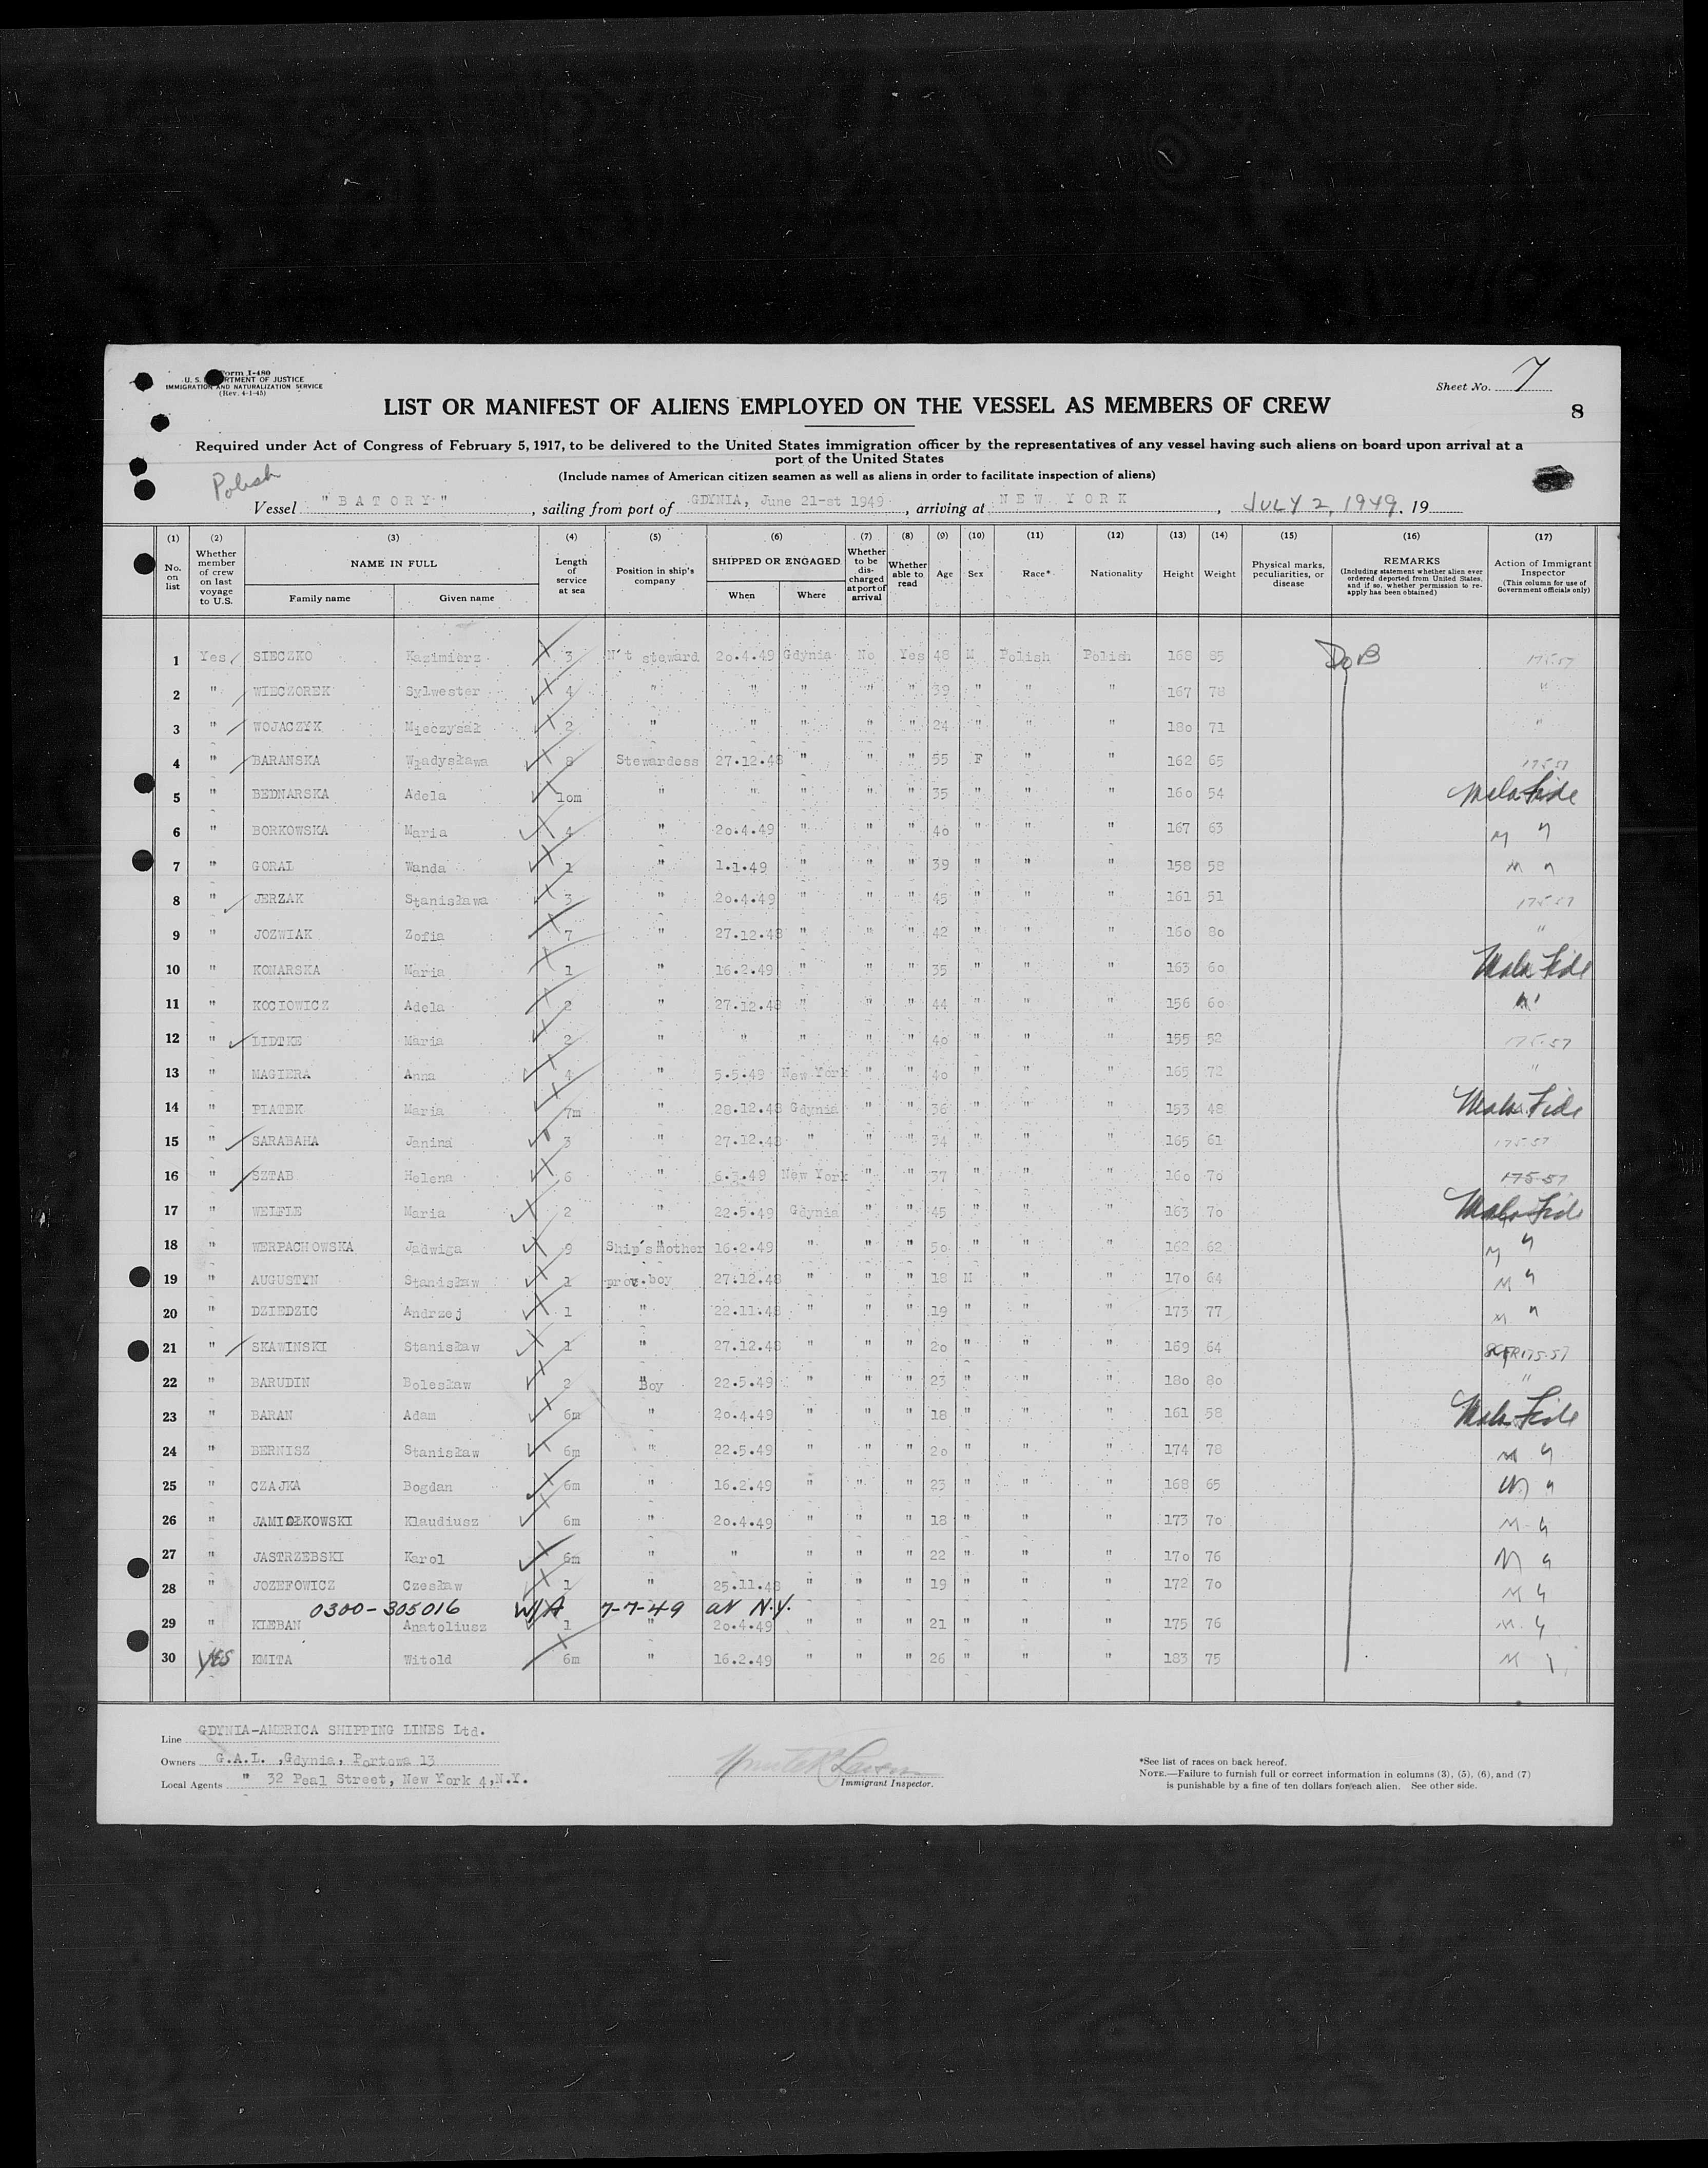 Form I-480
U. S. DEPARTMENT OF JUSTICE
IMMIGRATION AND NATURALIZATION SERVICE
(Rev. 4-1-45)
Sheet No. 7
8
LIST OR MANIFEST OF ALIENS EMPLOYED ON THE VESSEL AS MEMBERS OF CREW
Required under Act of Congress of February 5, 1917, to be delivered to the United States immigration officer by the representatives of any vessel having such aliens on board upon arrival at a
port of the United States
(Include names of American citizen seamen as well as aliens in order to facilitate inspection of aliens)
Polish
Vessel "BATORY", sailing from port of GDYNIA, June 21-st 1949, arriving at NEW YORK, JULY 2, 1949. 19
(1) (2) (3) (4) (5) (6) (7) (8) (9) (10) (11) (12) (13) (14) (15) (16) (17)
No. on list
Whether member of crew on last voyage to U.S.
NAME IN FULL
Family name Given name
Length of service at sea
Position in ship's company
SHIPPED OR ENGAGED
When Where
Whether to be discharged at port of arrival
Whether able to read
Age Sex Race* Nationality Height Weight
Physical marks, peculiarities, or disease
REMARKS
(Including statement whether alien ever ordered deported from United States, and if so, whether permission to reapply has been obtained)
Action of Immigrant Inspector
(This column for use of Government officials only)
1 Yes SIECZKO Kazimierz 3 N't steward 20.4.49 Gdynia No Yes 48 M Polish Polish 168 85 DoB 175.57
2 " WIECZOREK Sylwester 4 " " " " " 39 " " " 167 78 "
3 " WOJACZYK Mieczysał 2 " " " " " 24 " " " 180 71 "
4 " BARANSKA Władysława 8 Stewardess 27.12.48 " " " 55 F " " 162 65 175.57
5 " BEDNARSKA Adela 10m " " " " " 35 " " " 160 54 Mala Fide
6 " BORKOWSKA Maria 4 " 20.4.49 " " " 40 " " " 167 63 M "
7 " GORAL Wanda 1 " 1.1.49 " " " 39 " " " 158 58 M "
8 " JERZAK Stanisława 3 " 20.4.49 " " " 45 " " " 161 51 175.57
9 " JOZWIAK Zofia 7 " 27.12.48 " " " 42 " " " 160 80 "
10 " KONARSKA Maria 1 " 16.2.49 " " " 35 " " " 163 60 Mala Fide
11 " KOCIOWICZ Adela 2 " 27.12.48 " " " 44 " " " 156 60 M "
12 " LIDTKE Maria 2 " " " " " 40 " " " 155 52 175.57
13 " MAGIERA Anna 4 " 5.5.49 New York " " 40 " " " 165 72 "
14 " PIATEK Maria 7m " 28.12.48 Gdynia " " 36 " " " 153 48 Mala Fide
15 " SARABAHA Janina 3 " 27.12.48 " " " 34 " " " 165 61 175.57
16 " SZTAB Helena 6 " 6.3.49 New York " " 37 " " " 160 70 175-57
17 " WELFLE Maria 2 " 22.5.49 Gdynia " " 45 " " " 163 70 Mala Fide
18 " WERPACHOWSKA Jadwiga 9 Ship's mother 16.2.49 " " " 50 " " " 162 62 M "
19 " AUGUSTYN Stanisław 1 prov.boy 27.12.48 " " " 18 M " " 170 64 M "
20 " DZIEDZIC Andrzej 1 " 22.11.48 " " " 19 " " " 173 77 M "
21 " SKAWINSKI Stanisław 1 " 27.12.48 " " " 20 " " " 169 64 175-57
22 " BARUDIN Bolesław 2 Boy 22.5.49 " " " 23 " " " 180 80 "
23 " BARAN Adam 6m " 20.4.49 " " " 18 " " " 161 58 Mala Fide
24 " BERNISZ Stanisław 6m " 22.5.49 " " " 20 " " " 174 78 M "
25 " CZAJKA Bogdan 6m " 16.2.49 " " " 23 " " " 168 65 M "
26 " JAMIOŁKOWSKI Klaudiusz 6m " 20.4.49 " " " 18 " " " 173 70 M "
27 " JASTRZEBSKI Karol 6m " " " " " 22 " " " 170 76 M "
28 " JOZEFOWICZ Czesław 1 " 25.11.48 " " " 19 " " " 172 70 M "
0300-305016 W/A 7-7-49 at N.Y.
29 " KLEBAN Anatoliusz 1 " 20.4.49 " " " 21 " " " 175 76 M "
30 YES KMITA Witold 6m " 16.2.49 " " " 26 " " " 183 75 M "
Line GDYNIA-AMERICA SHIPPING LINES Ltd.
Owners G.A.L. ,Gdynia, Portowa 13
Local Agents " 32 Peal Street, New York 4,N.Y.
Immigrant Inspector.
*See list of races on back hereof.
NOTE.—Failure to furnish full or correct information in columns (3), (5), (6), and (7)
is punishable by a fine of ten dollars for each alien. See other side.